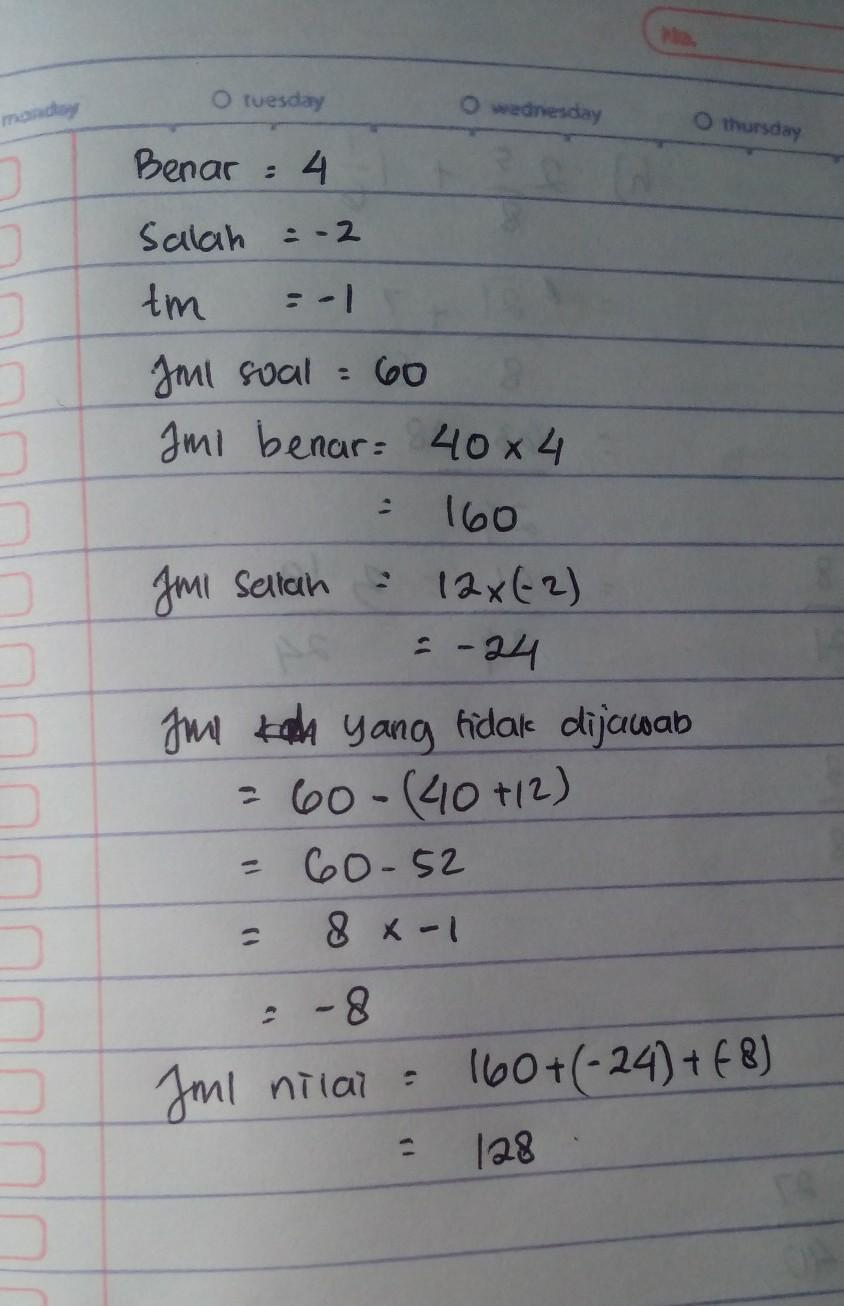 No.
monday tuesday wednesday thursday
Benar = 4
Salah = -2
tm = -1
Jml soal = 60
Jml benar = 40 x 4
= 160
Jml salah = 12x(-2)
= -24
Jml yang tidak dijawab
= 60 - (40 +12)
= 60 - 52
= 8 x -1
= -8
Jml nilai = 160+(-24)+(-8)
= 128